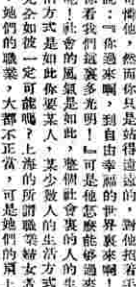 憐他，然而你只是站得遠遠的，對他招招手
：『你過來啊，到自由幸福的世界裏來
看我們這裏多光明！』可是他怎麽能够過來
呢！社會的風氣是如此，整個社會裏的人的生
活方式是如此你要某人，某少數人的生活方式
完全如彼一定可能嗎？上海的所謂職業婦女
她們的職業，大都不正當，可是她們的肩上